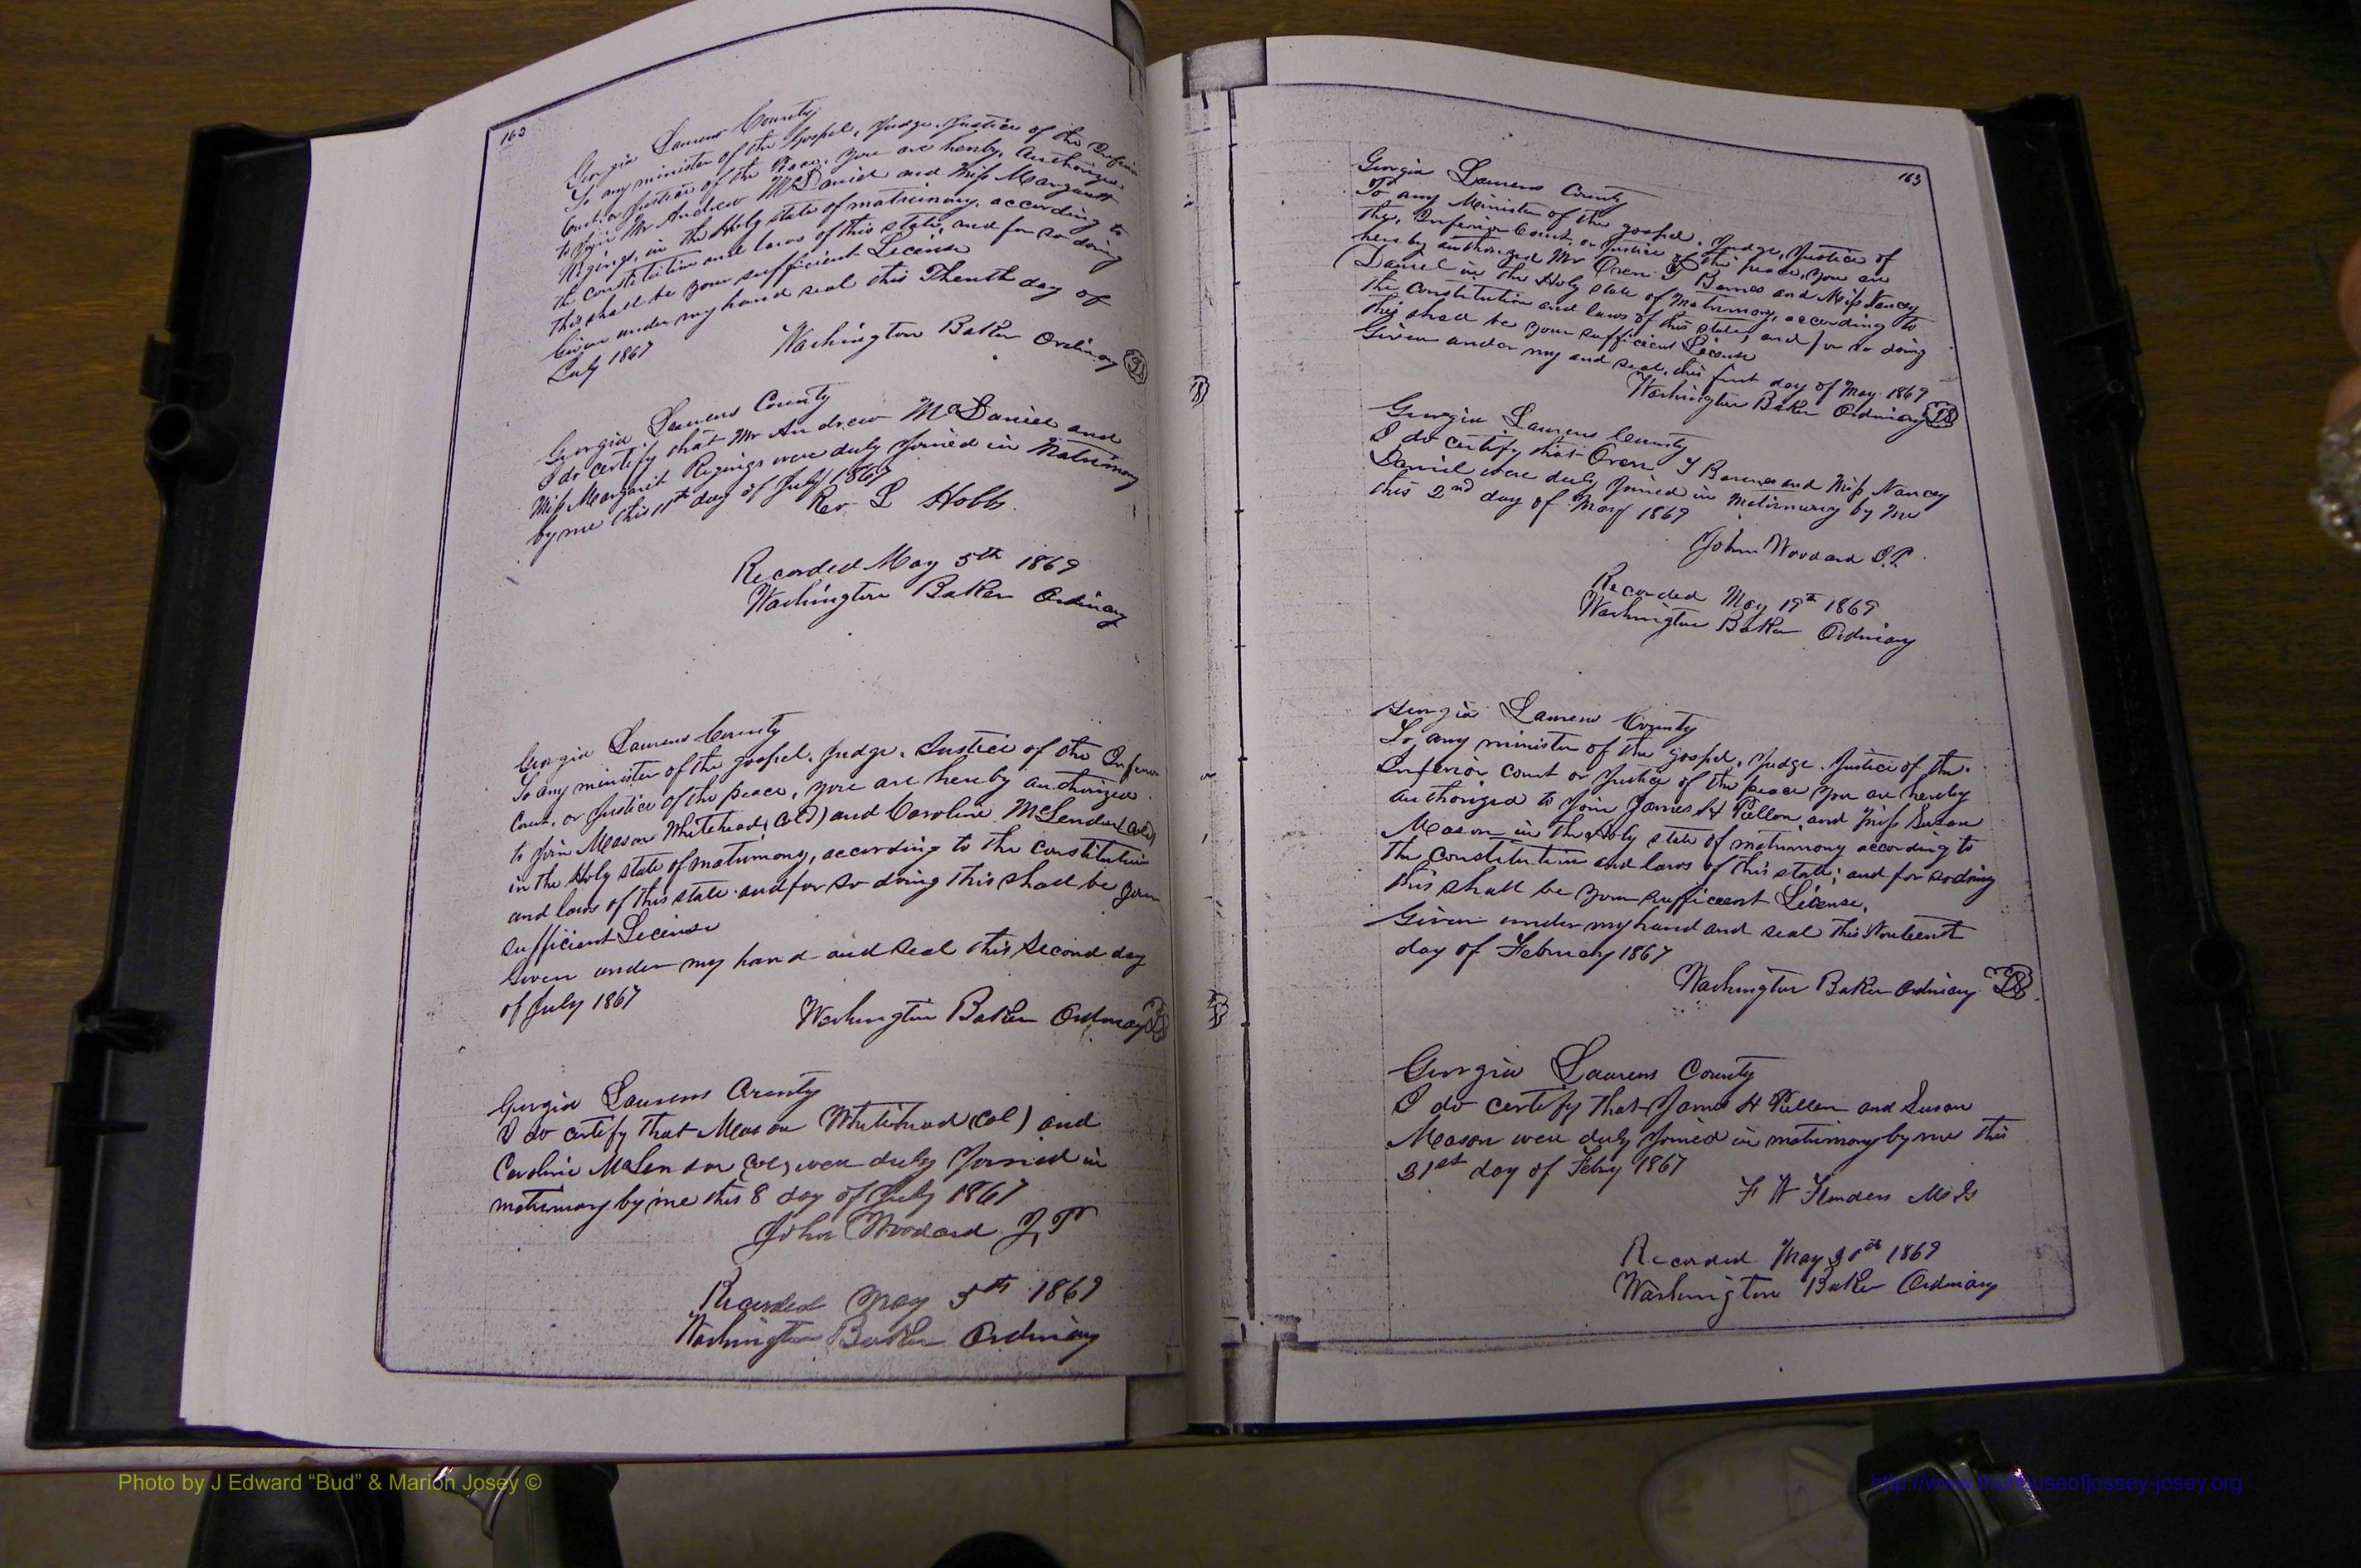 162
Georgia Laurens County
To any minister of the Gospel, Judge, Justice of the Inferior
Court, or Justice of the Peace, you are hereby, Authorized
to Join Mr Andrew McDaniel and Miss Margarett
in the Holy state of matrimony, according to
the constitution and laws of this state, and for so doing
this shall be your sufficient License
Given under my hand seal this Thenth day of
July 1867
Washington Baker Ordinary LS
Georgia Laurens County
I do certify that Mr Andrew McDaniel and
Miss Margaret were duly Joined in Matrimony
by me this 11th day of July 1867
Rev L Hobbs
Recorded May 5th 1869
Washington Baker Ordinary
Georgia Laurens County
To any minister of the gospel, Judge, Justice of the Inferior
Court, or Justice of the peace, you are hereby authorized
to Join Mason Whitehead (Cold) and Caroline McLendon (Cold)
in the Holy state of matrimony, according to the constitution
and laws of this state and for so doing this shall be your
sufficient License
Given under my hand and seal this second day
of July 1867
Washington Baker Ordinary LS
Georgia Laurens County
I do certify that Mason Whitehead (Col) and
Caroline McLendon (Col) were duly Joined in
matrimony by me this 8 day of July 1867
John Woodard J,P
Recorded May 5th 1869
Washington Baker Ordinary
163
Georgia Laurens County
To any Minister of the gospel, Judge, Justice of
the, Inferior Court, or Justice of the peace, you are
hereby authorized Mr Oren T Barnes and Miss Nancy
Daniel in the Holy state of Matrimony, according to
the constitution and laws of this state, and for so doing
this shall be your sufficient License
Given under my and seal, this first day of May 1869
Washington Baker Ordinary LS
Georgia Laurens County
I do certify that Oren T Barnes and Miss Nancy
Daniel were duly Joined in matrimony by me
this 2nd day of May 1869
John Woodard J.P.
Recorded May 19th 1869
Washington Baker Ordinary
Georgia Laurens County
To, any minister of the gospel, Judge. Justice of the.
Inferior court or Justice of the peace you are hereby
authorized to Join James H Pullen, and Miss Susan
Mason in the Holy state of matrimony according to
the constitution and laws of this state; and for so doing
this shall be your sufficient License,
Given under my hand and seal this
day of February 1867
Washington Baker Ordinary LS
Georgia Laurens County
I do certify that James H Pullen and Susan
Mason were duly Joined in matrimony by me this
31st day of Feby 1867
F W Flanders
Recorded May 1869
Washington Baker Ordinary
Photo by J Edward “Bud” & Marion Josey ©
http://www.thehouseofjossey-josey.org